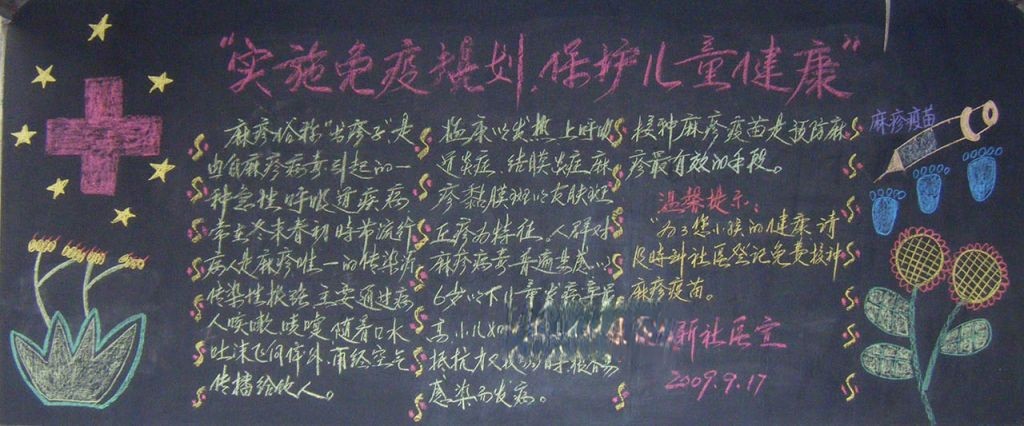 “实施免疫规划,保护儿童健康”
麻疹俗称“出疹子”是
由自麻疹病毒引起的一
种急性呼吸道疾病
常在冬末春初时节流行
病人是麻疹唯一的传染源
传染性极强主要通过病
人咳嗽、喷嚏随着口水
吐沫飞向体外,再经空气
传播给他人。
临床以发热、上呼吸
道炎症、结膜炎症麻
疹黏膜斑以皮肤斑
丘疹为特征,人群对
麻疹病毒普遍易感,以
6岁以下儿童发病率最
高,小儿
抵抗力
感染而发病。
接种麻疹疫苗是预防麻
疹最有效的手段。
温馨提示:
“为了您小孩的健康,请
及时到社区登记免费接种
麻疹疫苗。
新社区宣
2009.9.17
麻疹疫苗